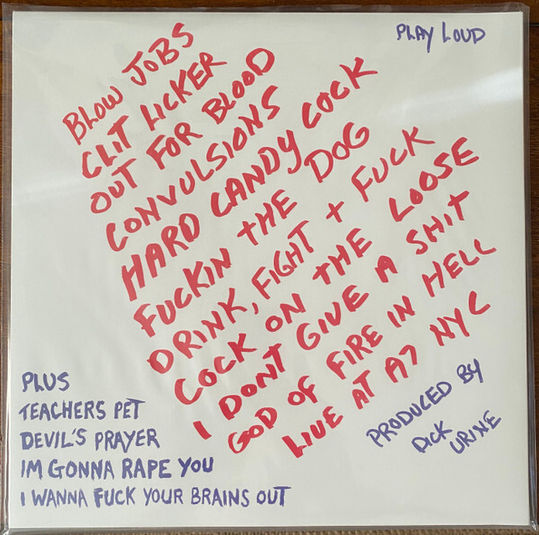 PLAY LOUD
BLOW JOBS
CLIT LICKER
OUT FOR BLOOD
CONVULSIONS
HARD CANDY COCK
FUCKIN THE DOG
DRINK, FIGHT + FUCK
COCK ON THE LOOSE
I DONT GIVE A SHIT
GOD OF FIRE IN HELL
LIVE AT A7 NYC
PRODUCED BY
DICK URINE
PLUS
TEACHERS PET
DEVIL'S PRAYER
IM GONNA RAPE YOU
I WANNA FUCK YOUR BRAINS OUT